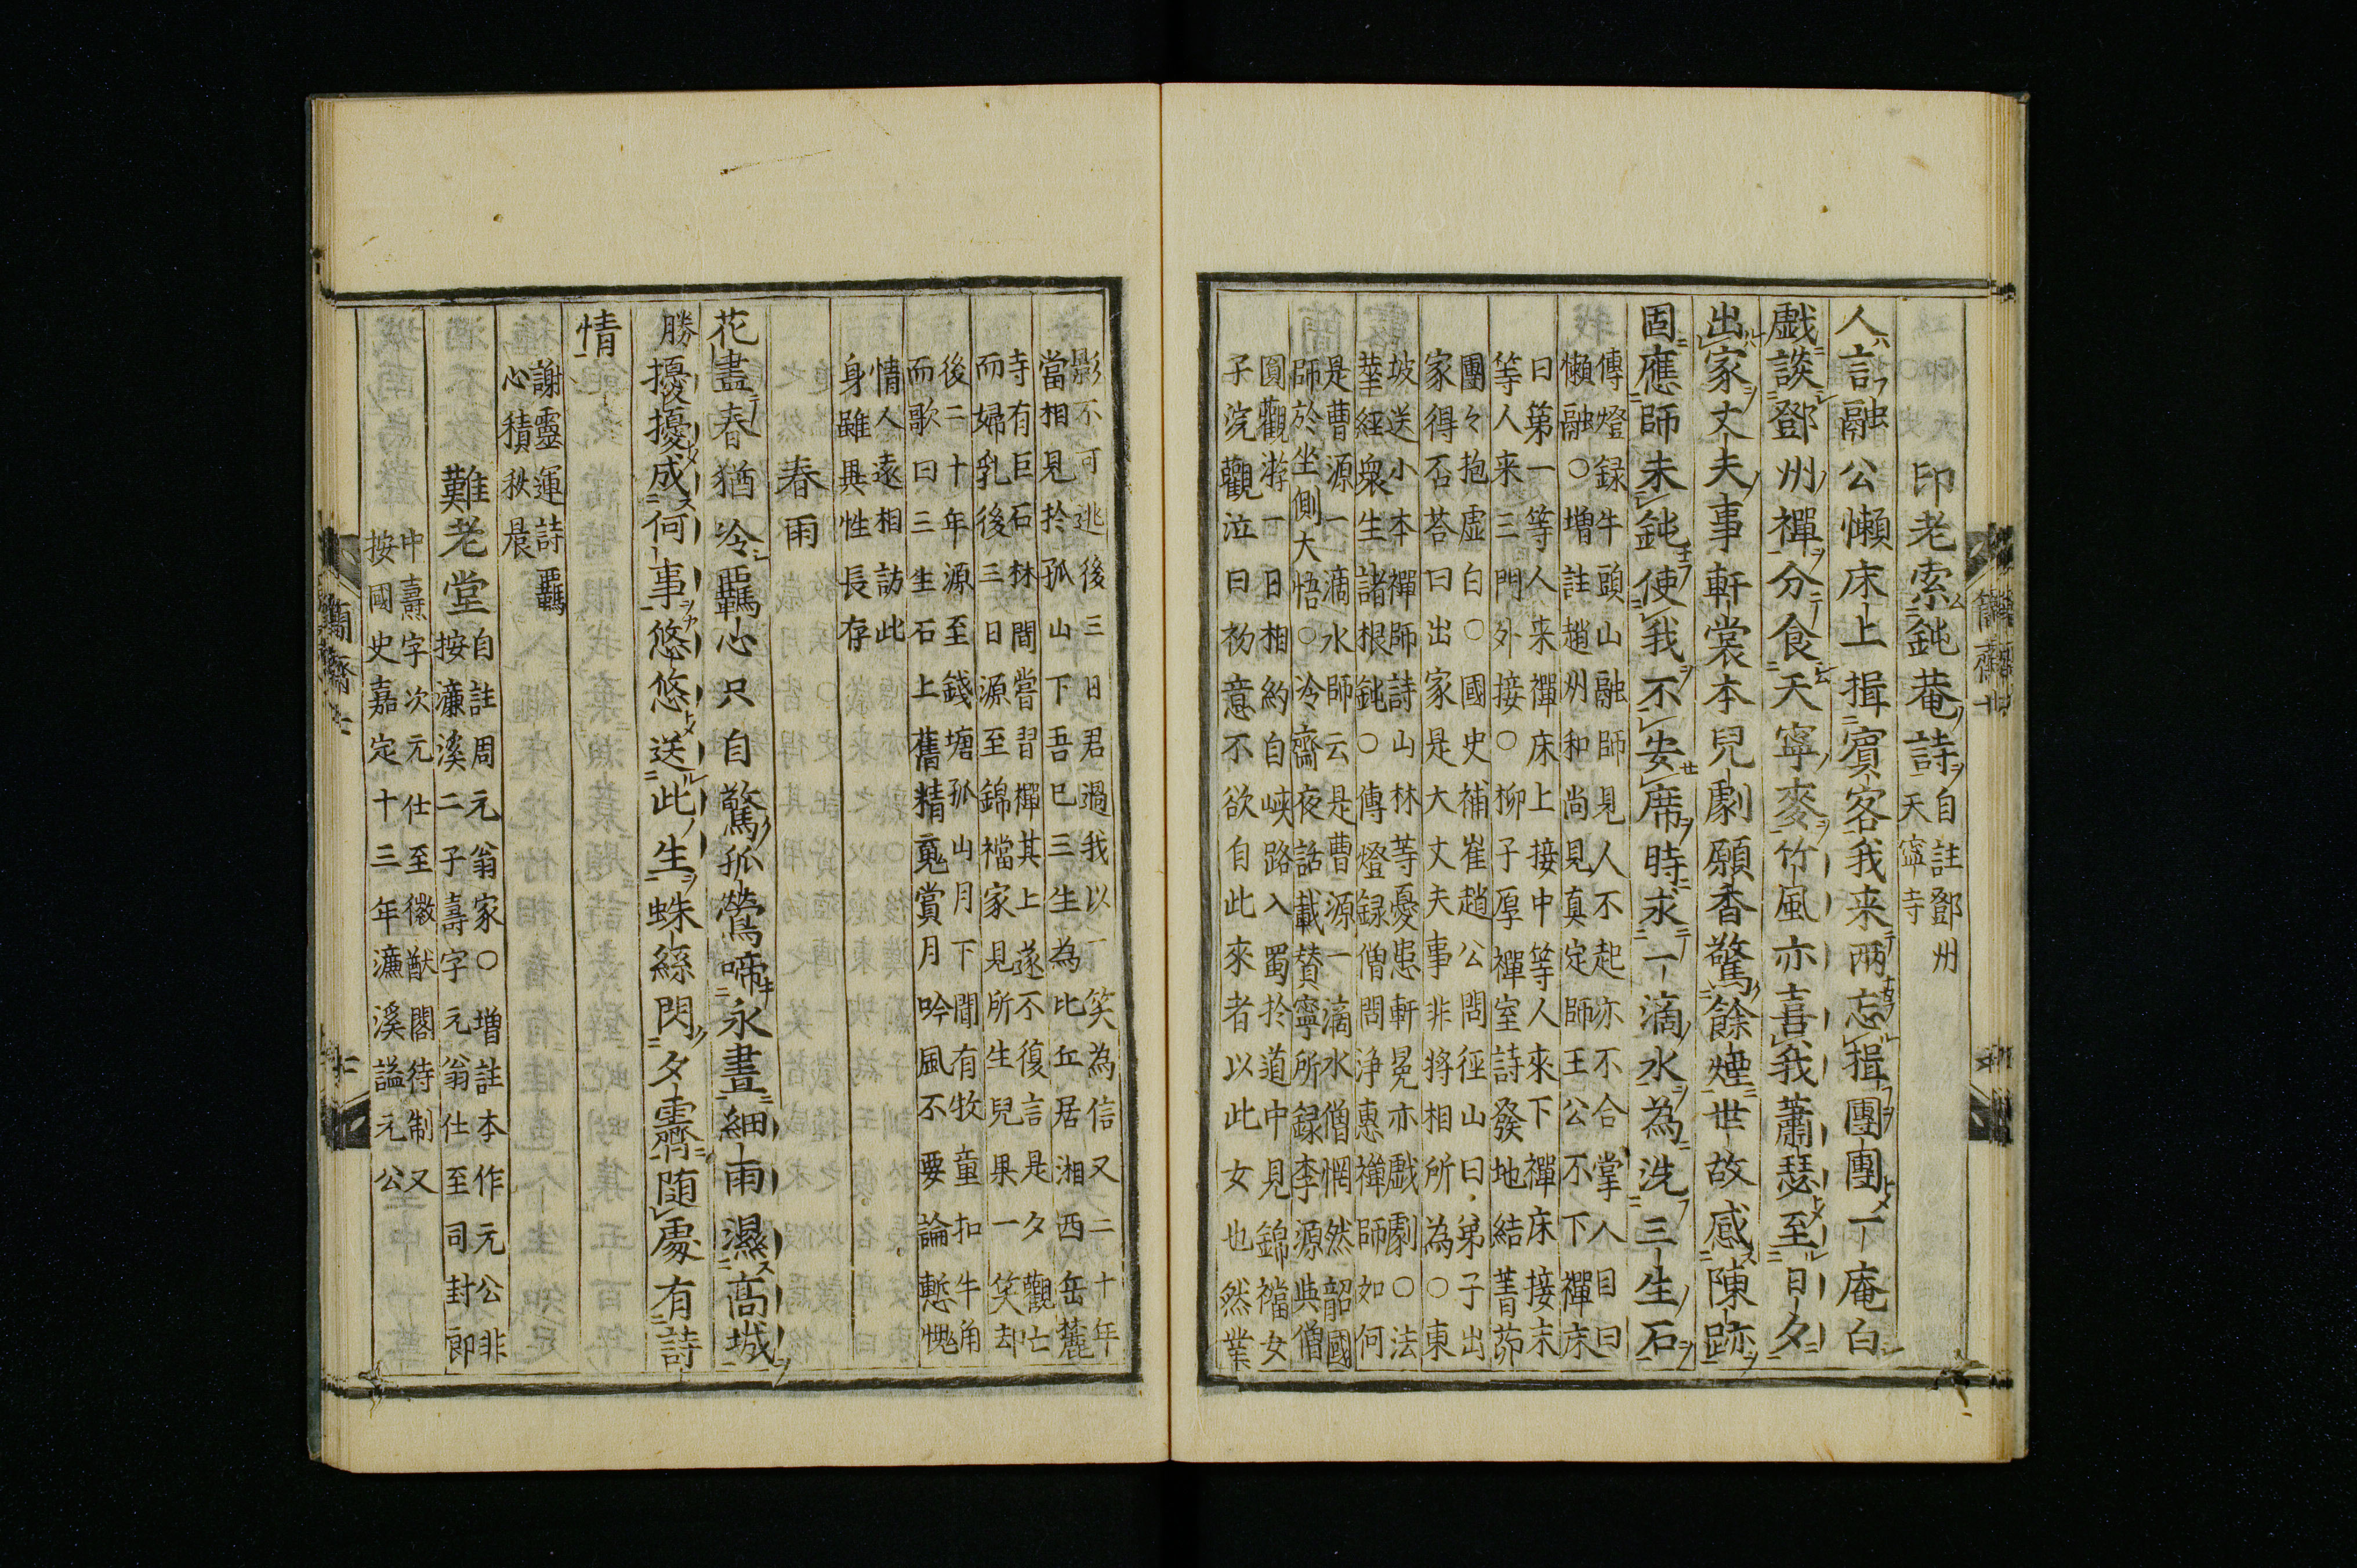 印老索鈍菴詩
自註鄧州
天寧寺
人言融公懶床上揖賓客我来兩忘揖團團一庵白
戲談鄧州禪分食天寧麥竹風亦喜我蕭瑟至日夕
出家丈夫事軒裳本兒劇願香驚餘煙世故感陳跡
固應師未鈍使我不安席時求一滴水為洗三生石
傳燈録牛頭山融師見人不起亦不合掌人目曰
懶融○增註趙州和尚見真定師王公不下禪床
曰第一等人来禪床上接中等人來下禪床接末
等人来三門外接○柳子厚禪室詩發地結菁茆
團々抱虛白○國史補崔趙公問徑山曰弟子出
家得否荅曰出家是大丈夫事非將相所為○東
坡送小本禪師詩山林等憂患軒冕亦戲劇○法
華經衆生諸根鈍○傳燈録僧問浄惠禪師如何
是曹源一滴水師云是曹源一滴水僧惘然韶國
師於坐側大悟○冷齋夜話載賛寧所録李源與僧
圓觀游一日相約自峽路入蜀於道中見錦襠女
子浣觀泣曰初意不欲自此來者以此女也然業
影不可逃後三日君過我以一笑為信又二十年
當相見於孤山下吾巳三生為比丘居湘西岳麓
寺有巨石林間嘗習禪其上遂不復言是夕觀亡
而婦乳後三日源至錦襠家見所生兒果一笑却
後二十年源至錢塘孤山月下聞有牧童扣牛角
而歌曰三生石上舊精䰟賞月吟風不要論慙愧
情人遠相訪此
身雖異性長存
春雨
花盡春猶冷羈心只自驚孤鶯啼永晝細雨濕髙城
擾擾成何事悠悠送此生蛛絲閃夕霽随處有詩
勝
情
謝靈運詩羈
心積秋晨
難老堂
自註周元翁家○增註本作元公非
按濂溪二子壽字元翁仕至司封郎
中燾字次元仕至徽猷閣待制又
按國史嘉定十三年濂溪謚元公
簡齋七